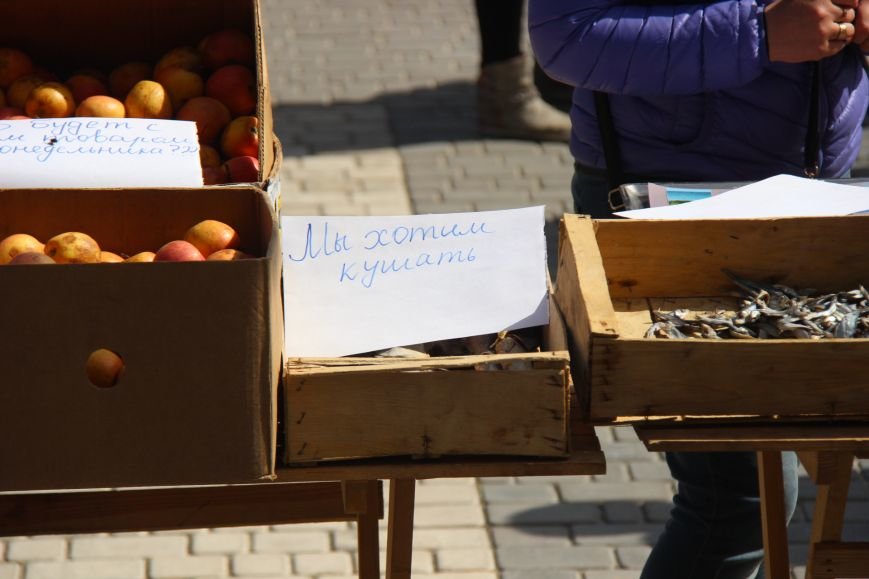 будет с
товаром
понедельника??
Мы хотим
кушать